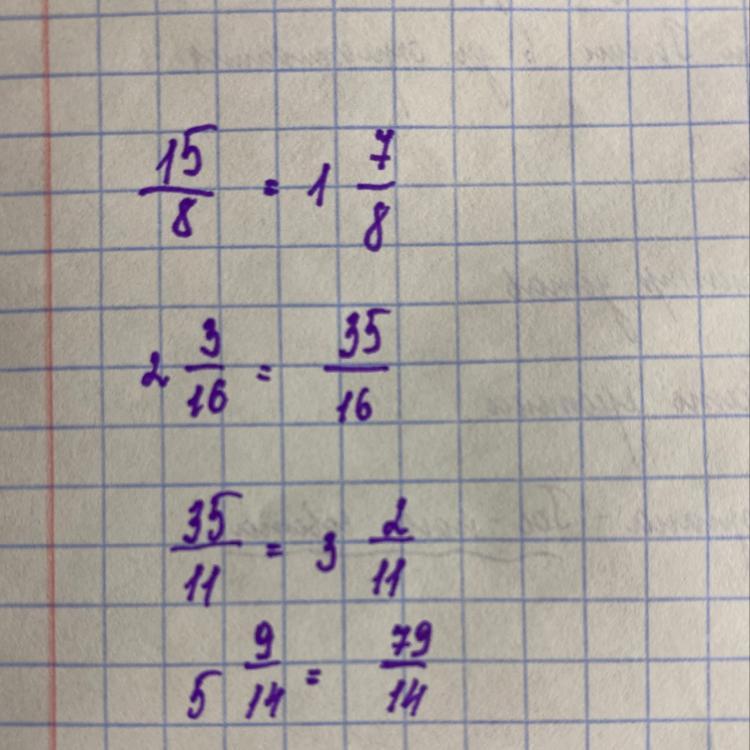 15/8 = 1 7/8
2 3/16 = 35/16
35/11 = 3 2/11
5 9/14 = 79/14